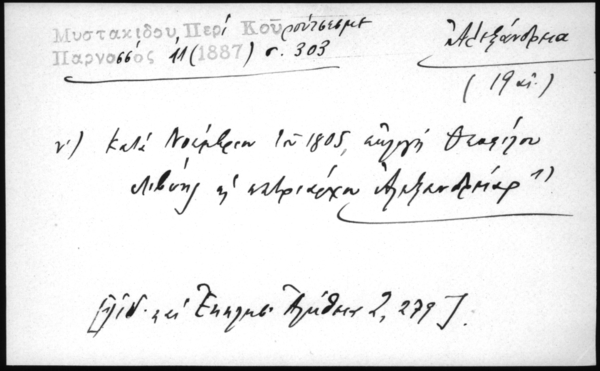 Μυστακίδου, Περί Κουρούτσεσμε
Παρνασσός 11 (1887) σ. 303
Ἀλεξάνδρεια
(19 αἰ.)
γ') κατά Νοέμβριον τοῦ 1805, ἐκλογή Θεοφίλου
Λιβύης εἰς πατριάρχου Ἀλεξανδρείας 1)
[Ἰδ. καί Ἐκκλησ. Ἀλήθεια 2, 279].